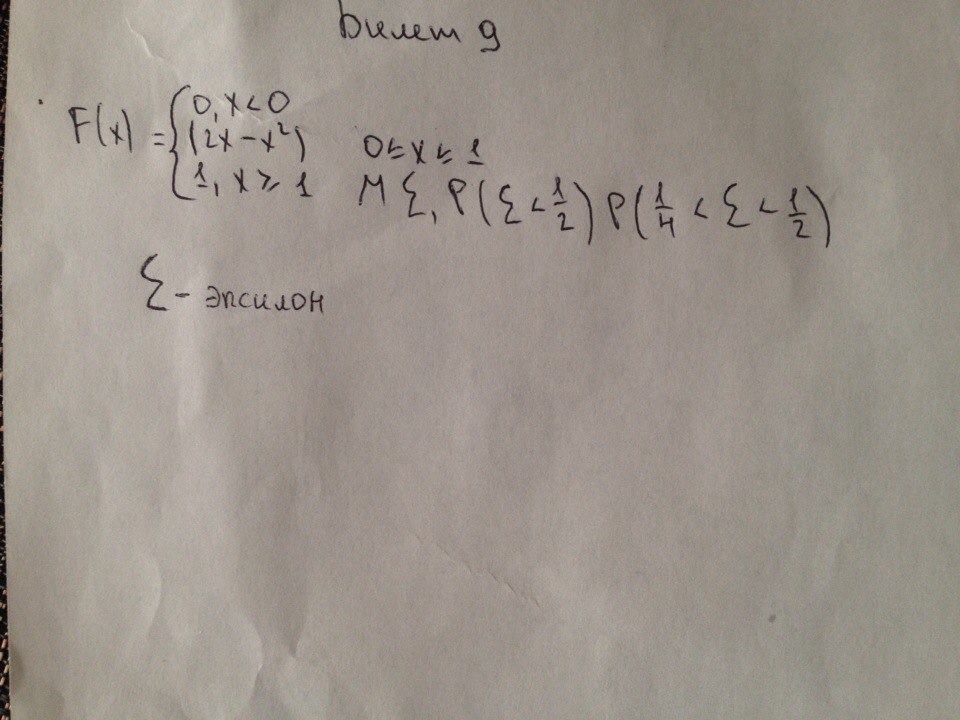 Билет 9
F(x) = { 0, x < 0
(2x - x²) 0 ≤ x ≤ 1
1, x ≥ 1 M ξ, P(ξ < 1/2) P(1/4 < ξ < 1/2)
ξ - эпсилон